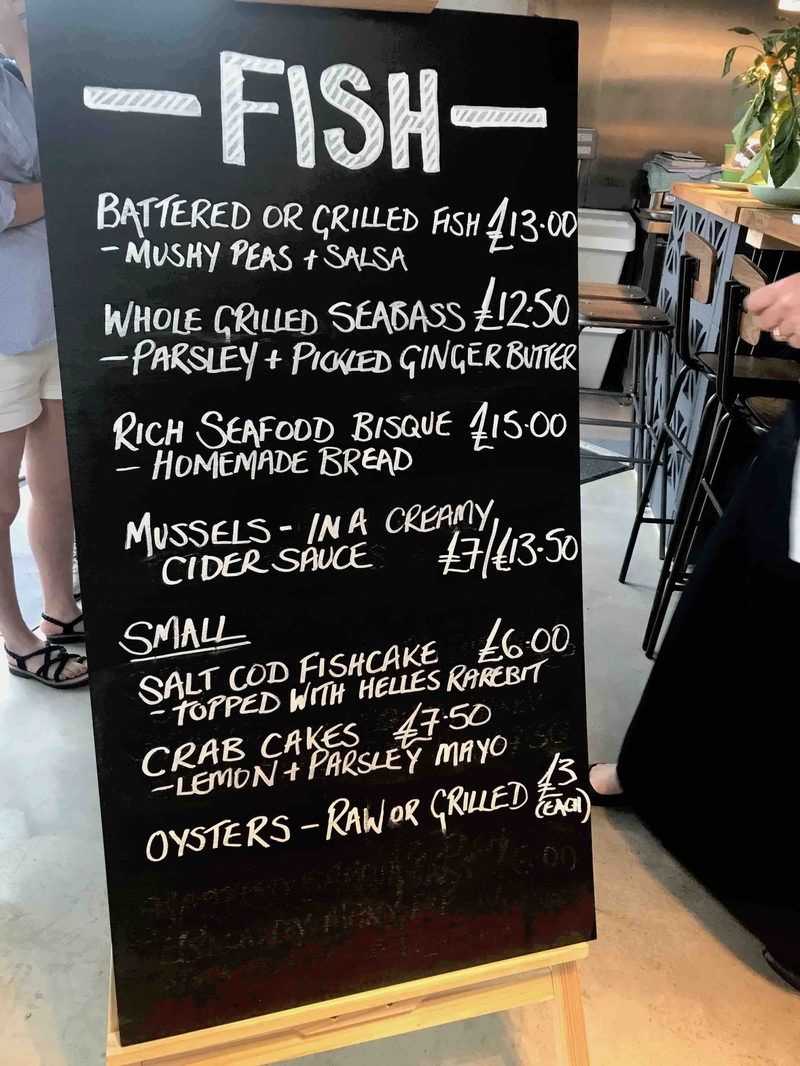 — FISH —
BATTERED OR GRILLED FISH £13.00
- MUSHY PEAS + SALSA
WHOLE GRILLED SEABASS £12.50
- PARSLEY + PICKLED GINGER BUTTER
RICH SEAFOOD BISQUE £15.00
- HOMEMADE BREAD
MUSSELS - IN A CREAMY
CIDER SAUCE £7/£13.50
SMALL
SALT COD FISHCAKE £6.00
- TOPPED WITH HELLES RAREBIT
CRAB CAKES £7.50
- LEMON + PARSLEY MAYO
OYSTERS - RAW OR GRILLED £3
(EACH)